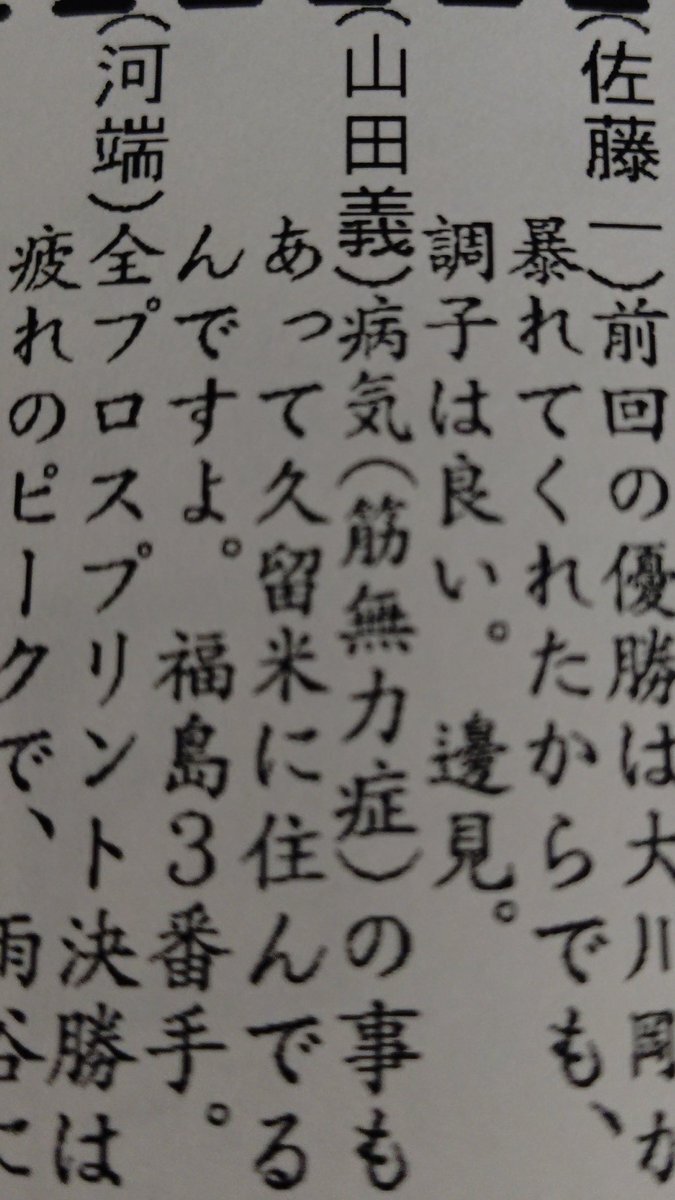 （佐藤一）前回の優勝は大川剛が
暴れてくれたからでも、
調子は良い。　邊見。
（山田義）病気（筋無力症）の事も
あって久留米に住んでる
んですよ。　福島３番手。
（河端）全プロスプリント決勝は
疲れのピークで、　雨谷に